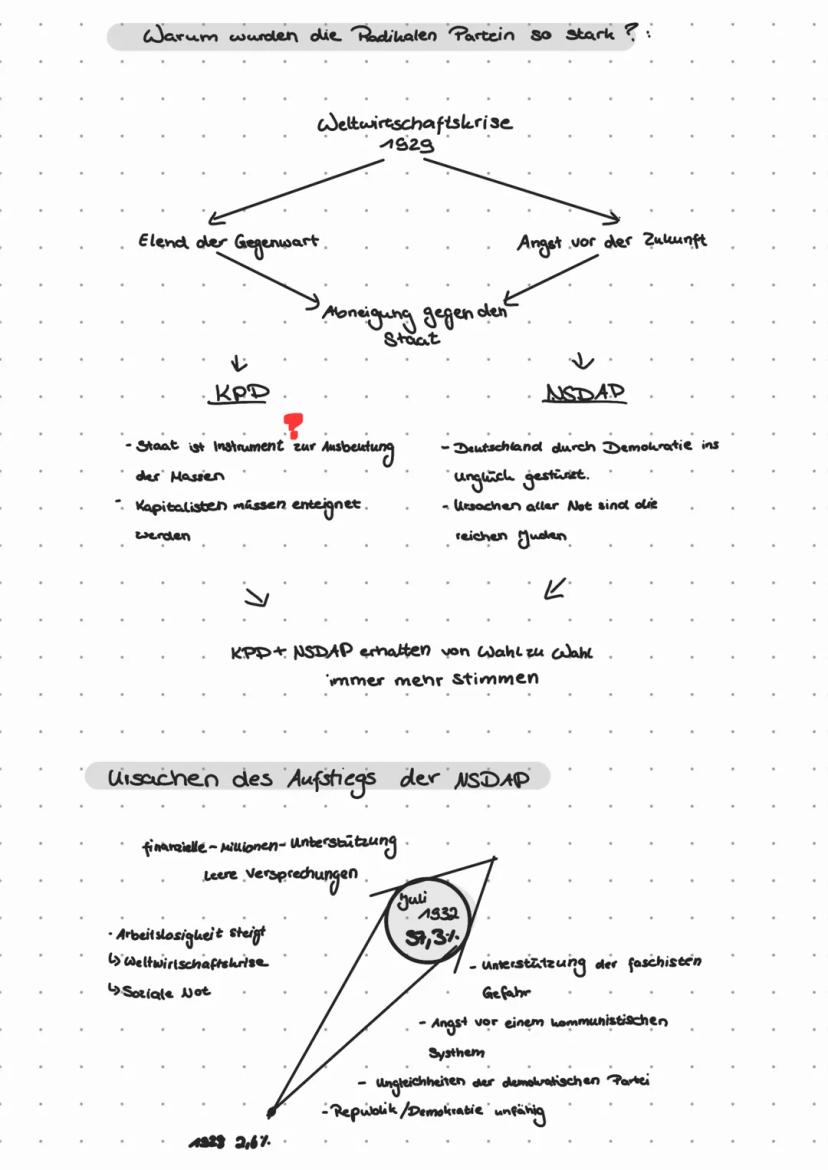 Warum wurden die Radikalen Partein so stark ? :
Weltwirtschaftskrise
1929
Elend der Gegenwart
Angst vor der Zukunft
Abneigung gegen den
Staat
KPD
NSDAP
?
- Staat ist Instrument zur Ausbeutung
der Massen
- Kapitalisten müssen enteignet
werden
- Deutschland durch Demokratie ins
Unglück gestürzt.
- Ursachen aller Not sind die
reichen Juden
KPD + NSDAP erhalten von Wahl zu Wahl
immer mehr Stimmen
Ursachen des Aufstiegs der NSDAP
finanzielle-Millionen-Unterstützung
leere Versprechungen
Juli
1932
37,3%
· Arbeitslosigkeit steigt
↳ Weltwirtschaftskrise
↳ Soziale Not
- Unterstützung der faschisten
Gefahr
- Angst vor einem kommunistischen
Systhem
- Ungleichheiten der demokratischen Partei
- Republik/Demokratie unfähig
2,6%